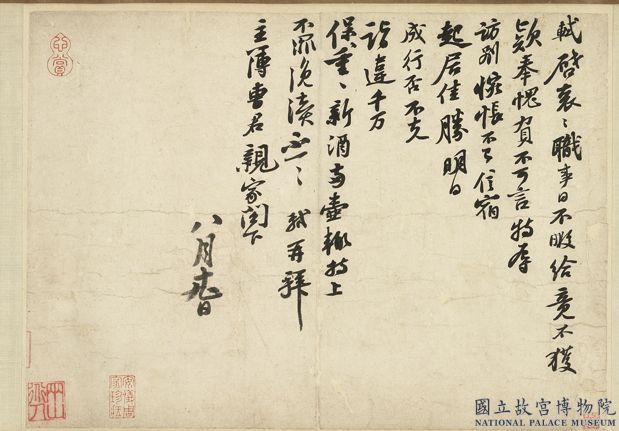 軾啓袞〻職事日不暇給竟不獲
款奉愧負不可言特辱
訪別惋悵不已信宿
起居佳勝明日
成行否不克
詣違千万
保重〻新酒兩壺輒持上
不罪浼瀆不一〻軾再拜
主簿曹君親家閣下
八月 日
安儀周家珍藏
國立故宮博物院
NATIONAL PALACE MUSEUM